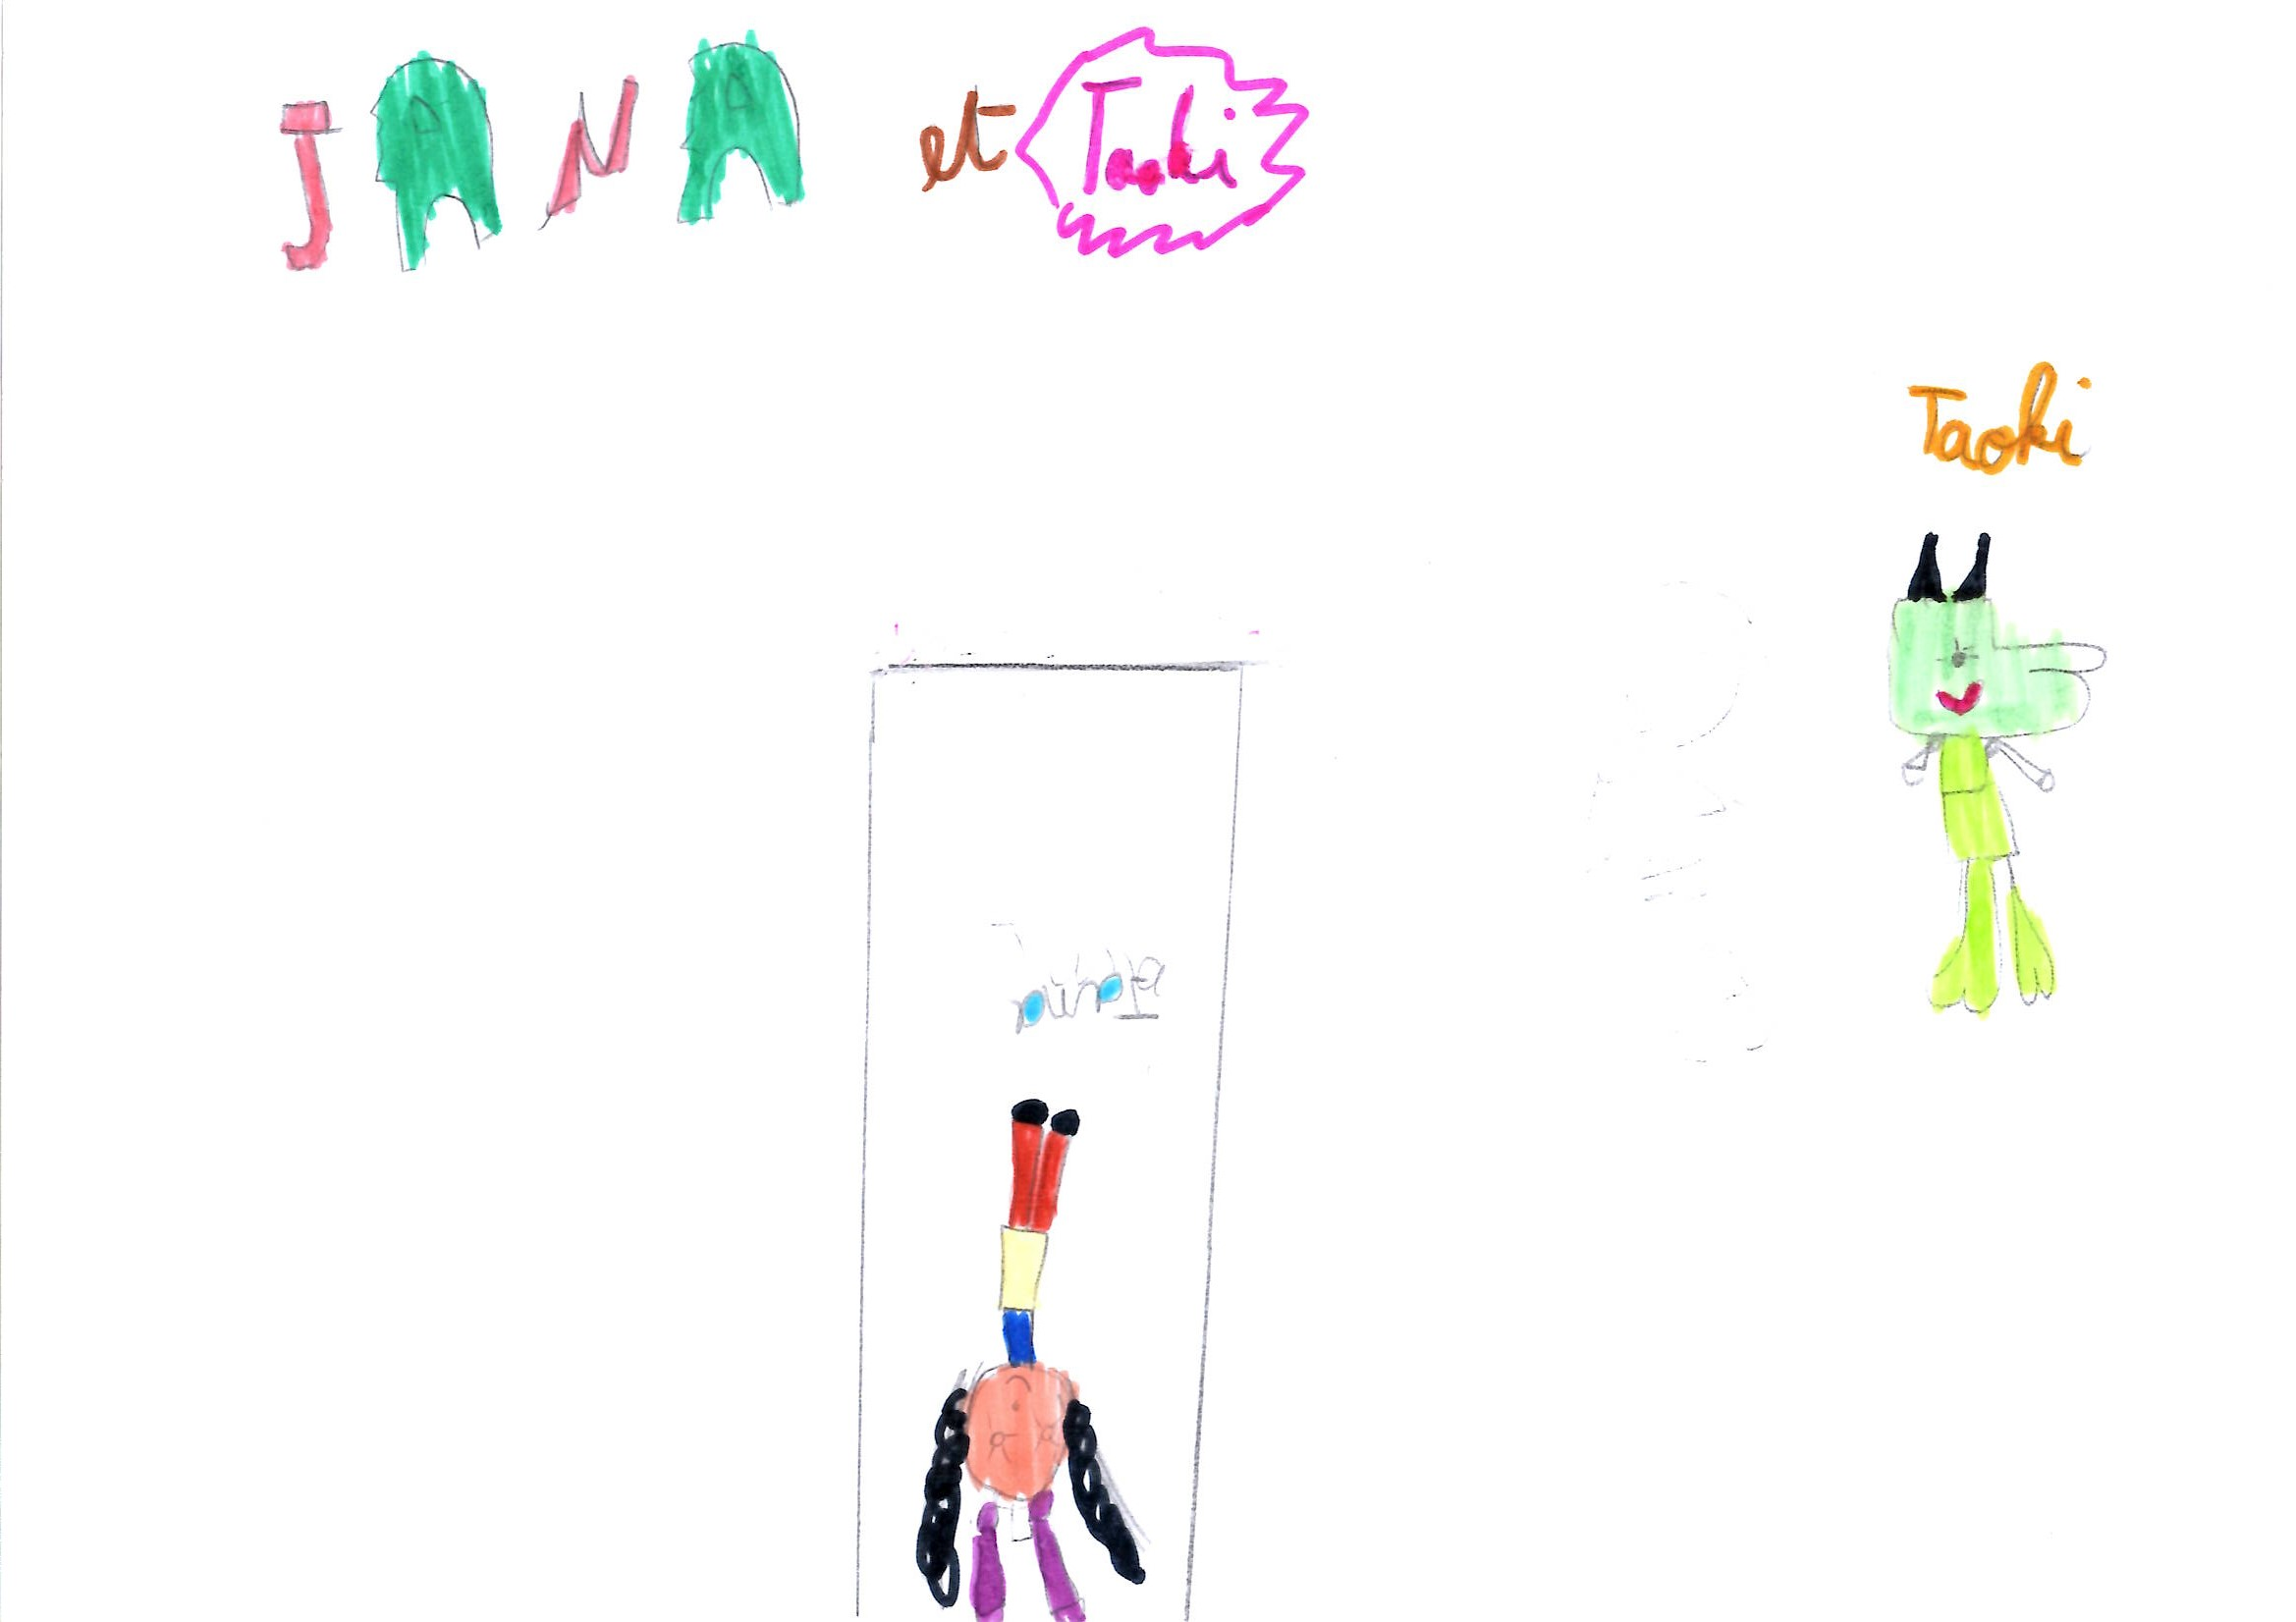 JANA et Taoki
Taoki